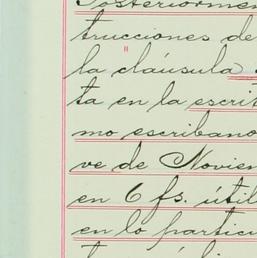 Posteriormen
trucciones de
la cláusula
ta en la escrit
mo escribano
ve de Novien
en 6 fs. útil
en lo particu